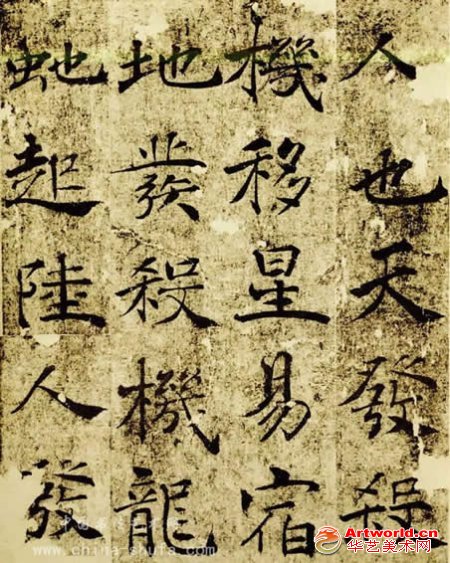 人也天發殺
機移星易宿
地發殺機龍
虵起陸人發
Artworld.cn
华艺美术网
www.china-shufa.com